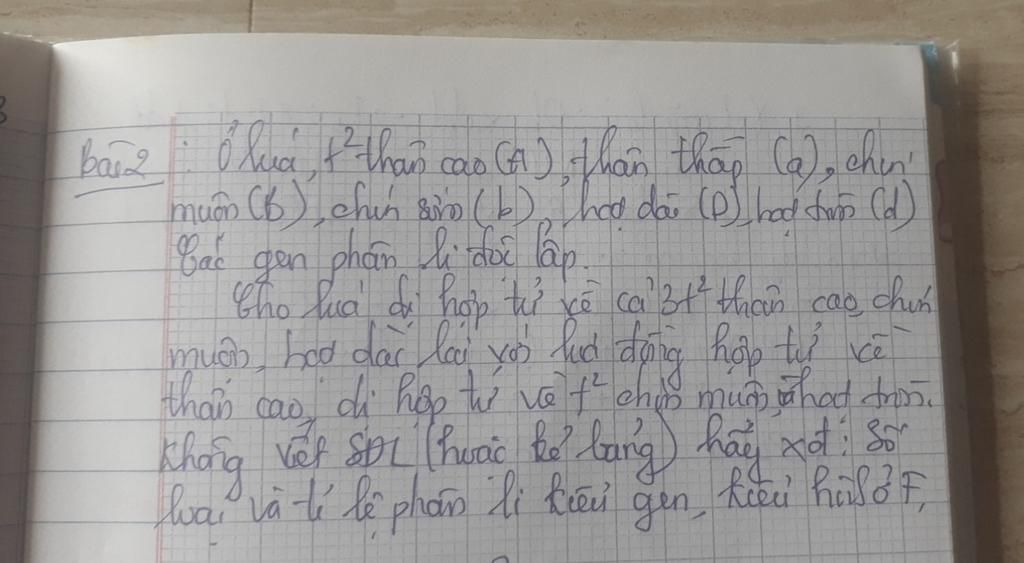 Bài 2: Ở lúa, t² thân cao (A), thân thấp (a), chín
muộn (b), chín sớm (b), hạt dài (D), hạt tròn (d)
Các gen phân li độc lập.
Cho lúa dị hợp tử về cả 3 t² thân cao, chín
muộn, hạt dài lai với lúa đồng hợp tử về
thân cao, dị hợp tử về t² chín muộn, hạt tròn.
Không viết SĐL (hoặc kẻ bảng) hãy xđ: Số
loại và tỉ lệ phân li kiểu gen, kiểu hình ở F,